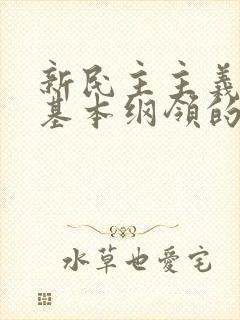 新民主主義
基本纲领的
水草也愛宅